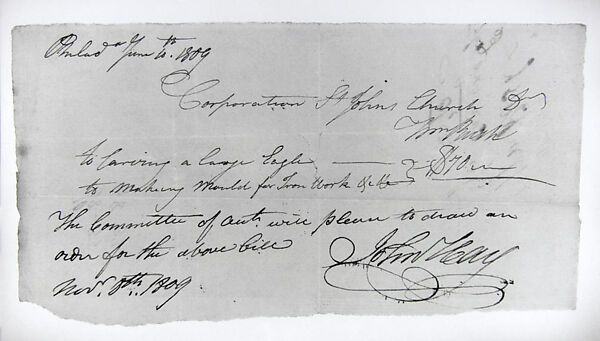 Philada June 10th 1809
Corporation St Johns Church Dr
Wm Rush
to Carving a large Eagle $70
to Making Mould for Iron Work &c
The Committee of will please to draw an
order for the above bill
Novr. 8th. 1809 John Hay